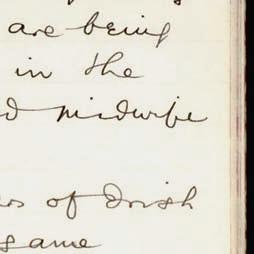 are being
in the
midwife
of Irish
same